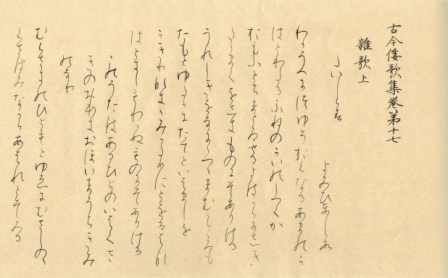 古今倭歌集巻第十七
雜歌上
たいしらす
よみひとしらす
わかうへにつゆそおくなるあまのかは
とわたるふねのかいのしつくか
おもふとちまとゐせるよはからにしき
たゝまくをしきものにそありける
うれしきをなにゝつゝまむからころも
たもとゆたかにたてといはましを
かきりなききみかためにとをるはなは
ときしもわかぬものにそありける
このうたはあるひとのいはくさ
きのおほきおほいまうちきみ
のなり
むらさきのひともとゆゑにむさしのゝ
くさはみなからあはれとそみる